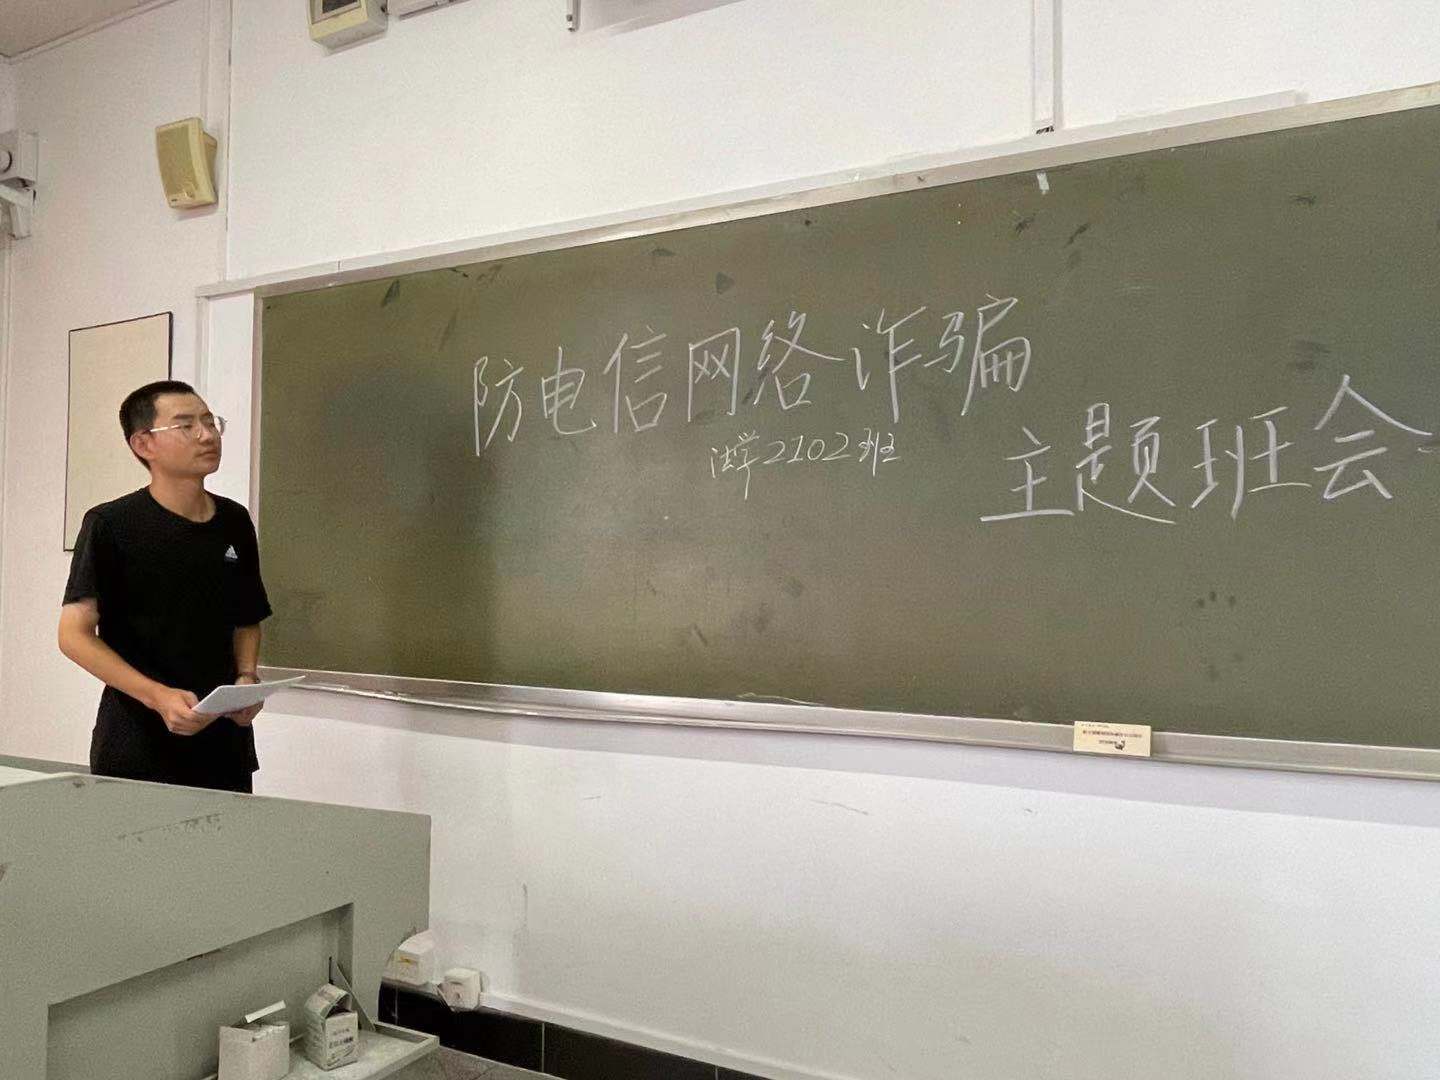 防电信网络诈骗
法学2102班
主题班会